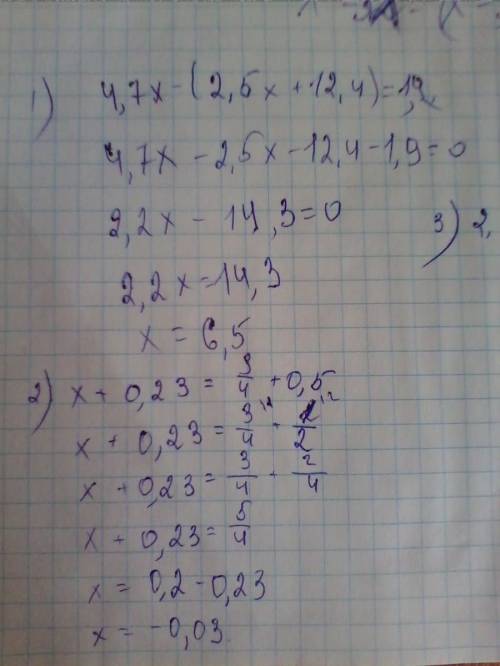 1) 4,7x - (2,5x + 12,4) = 1,9
4,7x - 2,5x - 12,4 - 1,9 = 0
2,2x - 14,3 = 0
2,2x = 14,3
x = 6,5
3) 2,
2) x + 0,23 = 3/4 + 0,5
x + 0,23 = 3/4 + 1/2
x + 0,23 = 3/4 + 2/4
x + 0,23 = 5/4
x = 0,2 - 0,23
x = -0,03